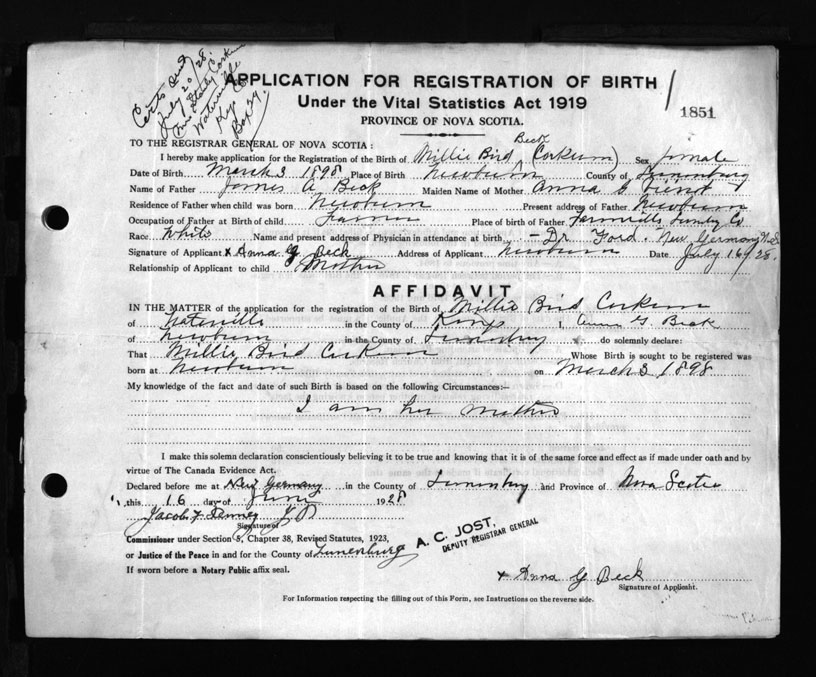 Certs Sent
July 20/28
Mrs Stanley Corkum
Waterville
Kings Co
Box 29.
APPLICATION FOR REGISTRATION OF BIRTH
Under the Vital Statistics Act 1919
PROVINCE OF NOVA SCOTIA.
1851
TO THE REGISTRAR GENERAL OF NOVA SCOTIA:
Beck
I hereby make application for the Registration of the Birth of Millie Bird (Corkum) Sex female
Date of Birth March 3 1898 Place of Birth Newburn County of Lunenburg
Name of Father James A. Beck Maiden Name of Mother Anna G
Residence of Father when child was born Newburn Present address of Father Newburn
Occupation of Father at Birth of child Farmer Place of birth of Father Co
Race White Name and present address of Physician in attendance at birth - Dr Ford. New Germany N.S
Signature of Applicant x Anna G Beck Address of Applicant Newburn Date July 16/28.
Relationship of Applicant to child Mother
AFFIDAVIT
IN THE MATTER of the application for the registration of the Birth of Millie Bird Corkum
of Waterville in the County of Kings I, Anna G. Beck
of Newburn in the County of Lunenburg do solemnly declare:
That Millie Bird Corkum Whose Birth is sought to be registered was
born at Newburn on March 3 1898
My knowledge of the fact and date of such Birth is based on the following Circumstances:—
I am her mother
I make this solemn declaration conscientiously believing it to be true and knowing that it is of the same force and effect as if made under oath and by
virtue of The Canada Evidence Act.
Declared before me at New Germany in the County of Lunenburg and Province of Nova Scotia
this 16 day of June 1928
Jacob F J P
Signature of
Commissioner under Section 8, Chapter 38, Revised Statutes, 1923,
or Justice of the Peace in and for the County of Lunenburg
A. C. JOST,
DEPUTY REGISTRAR GENERAL
If sworn before a Notary Public affix seal.
x Anna G Beck
Signature of Applicant
For Information respecting the filling out of this Form, see Instructions on the reverse side.